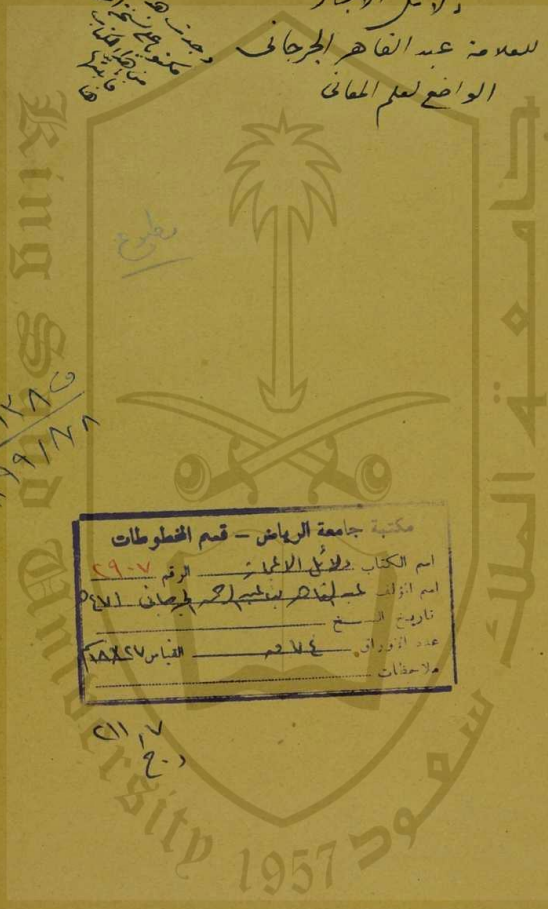 دلائل الاعجاز
للعلامة عبد القاهر الجرجانى
الواضع لعلم المعانى
وجدت
مطبوع
مكتبة جامعة الرياض - قسم المخطوطات
اسم الكتاب دلائل الاعجاز الرقم ٢٩٠٧
اسم المؤلف عبد القاهر بن عبد الرحمن الجرجانى
تاريخ النسخ
عدد الأوراق القياس ٢٧×١٨
ملاحظات
٢١١,٧
د.ج
King Saud University 1957
جامعة الملك سعود